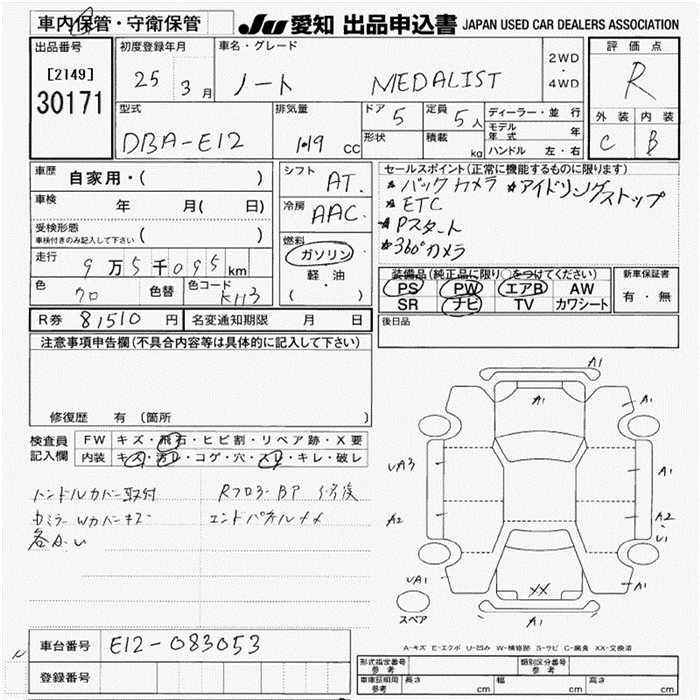 車内保管・守衛保管 JU 愛知 出品申込書 JAPAN USED CAR DEALERS ASSOCIATION
出品番号 初度登録年月 車名・グレード 評価点
[2149] 25 3月 ノート MEDALIST 2WD・4WD R
30171 型式 排気量 ドア 5 定員 5人 ディーラー・並行 外装 内装
DBA-E12 1.19 cc 形状 積載 kg モデル年式 年 C B
ハンドル 左・右
車歴 自家用・( ) シフト AT. セールスポイント(正常に機能するものに限ります)
車検 年 月( 日) 冷房 AAC. *バックカメラ *アイドリングストップ
受検形態 ( ) *ETC
車検付きのみ記入して下さい *Pスタート
走行 9万5千095km 燃料 ガソリン *360°カメラ
軽・油
( )
色 クロ 色替 色コード KH3 装備品(純正品に限り○をつけてください) 新車保証書
PS PW エアB AW 有・無
SR ナビ TV カワシート
R券 8,510円 名変通知期限 月 日 後日品
注意事項申告欄(不具合内容等は具体的に記入して下さい)
修復歴 有 (箇所 )
検査員記入欄 FW キズ・飛石・ヒビ割・リペア跡・X要
内装 キズ・汚レ・コゲ・穴・スレ・キレ・破レ
ハンドルカバー取付 Rフロアー BP 修復
カミラーWカバーキズ エンドパネルメメ
各A・U
A1
A1
A1
VA3 A1
A2 A2・U1
VA1 XX A1
スペア A1
A-キズ E-エクボ U-凹み W-補修跡 S-サビ C-腐食 XX-交換済
車台番号 E12-083053
登録番号
形式指定番号 参考 類別区分番号 参考
車庫証明用 参考 長さ cm 幅 cm 高さ cm